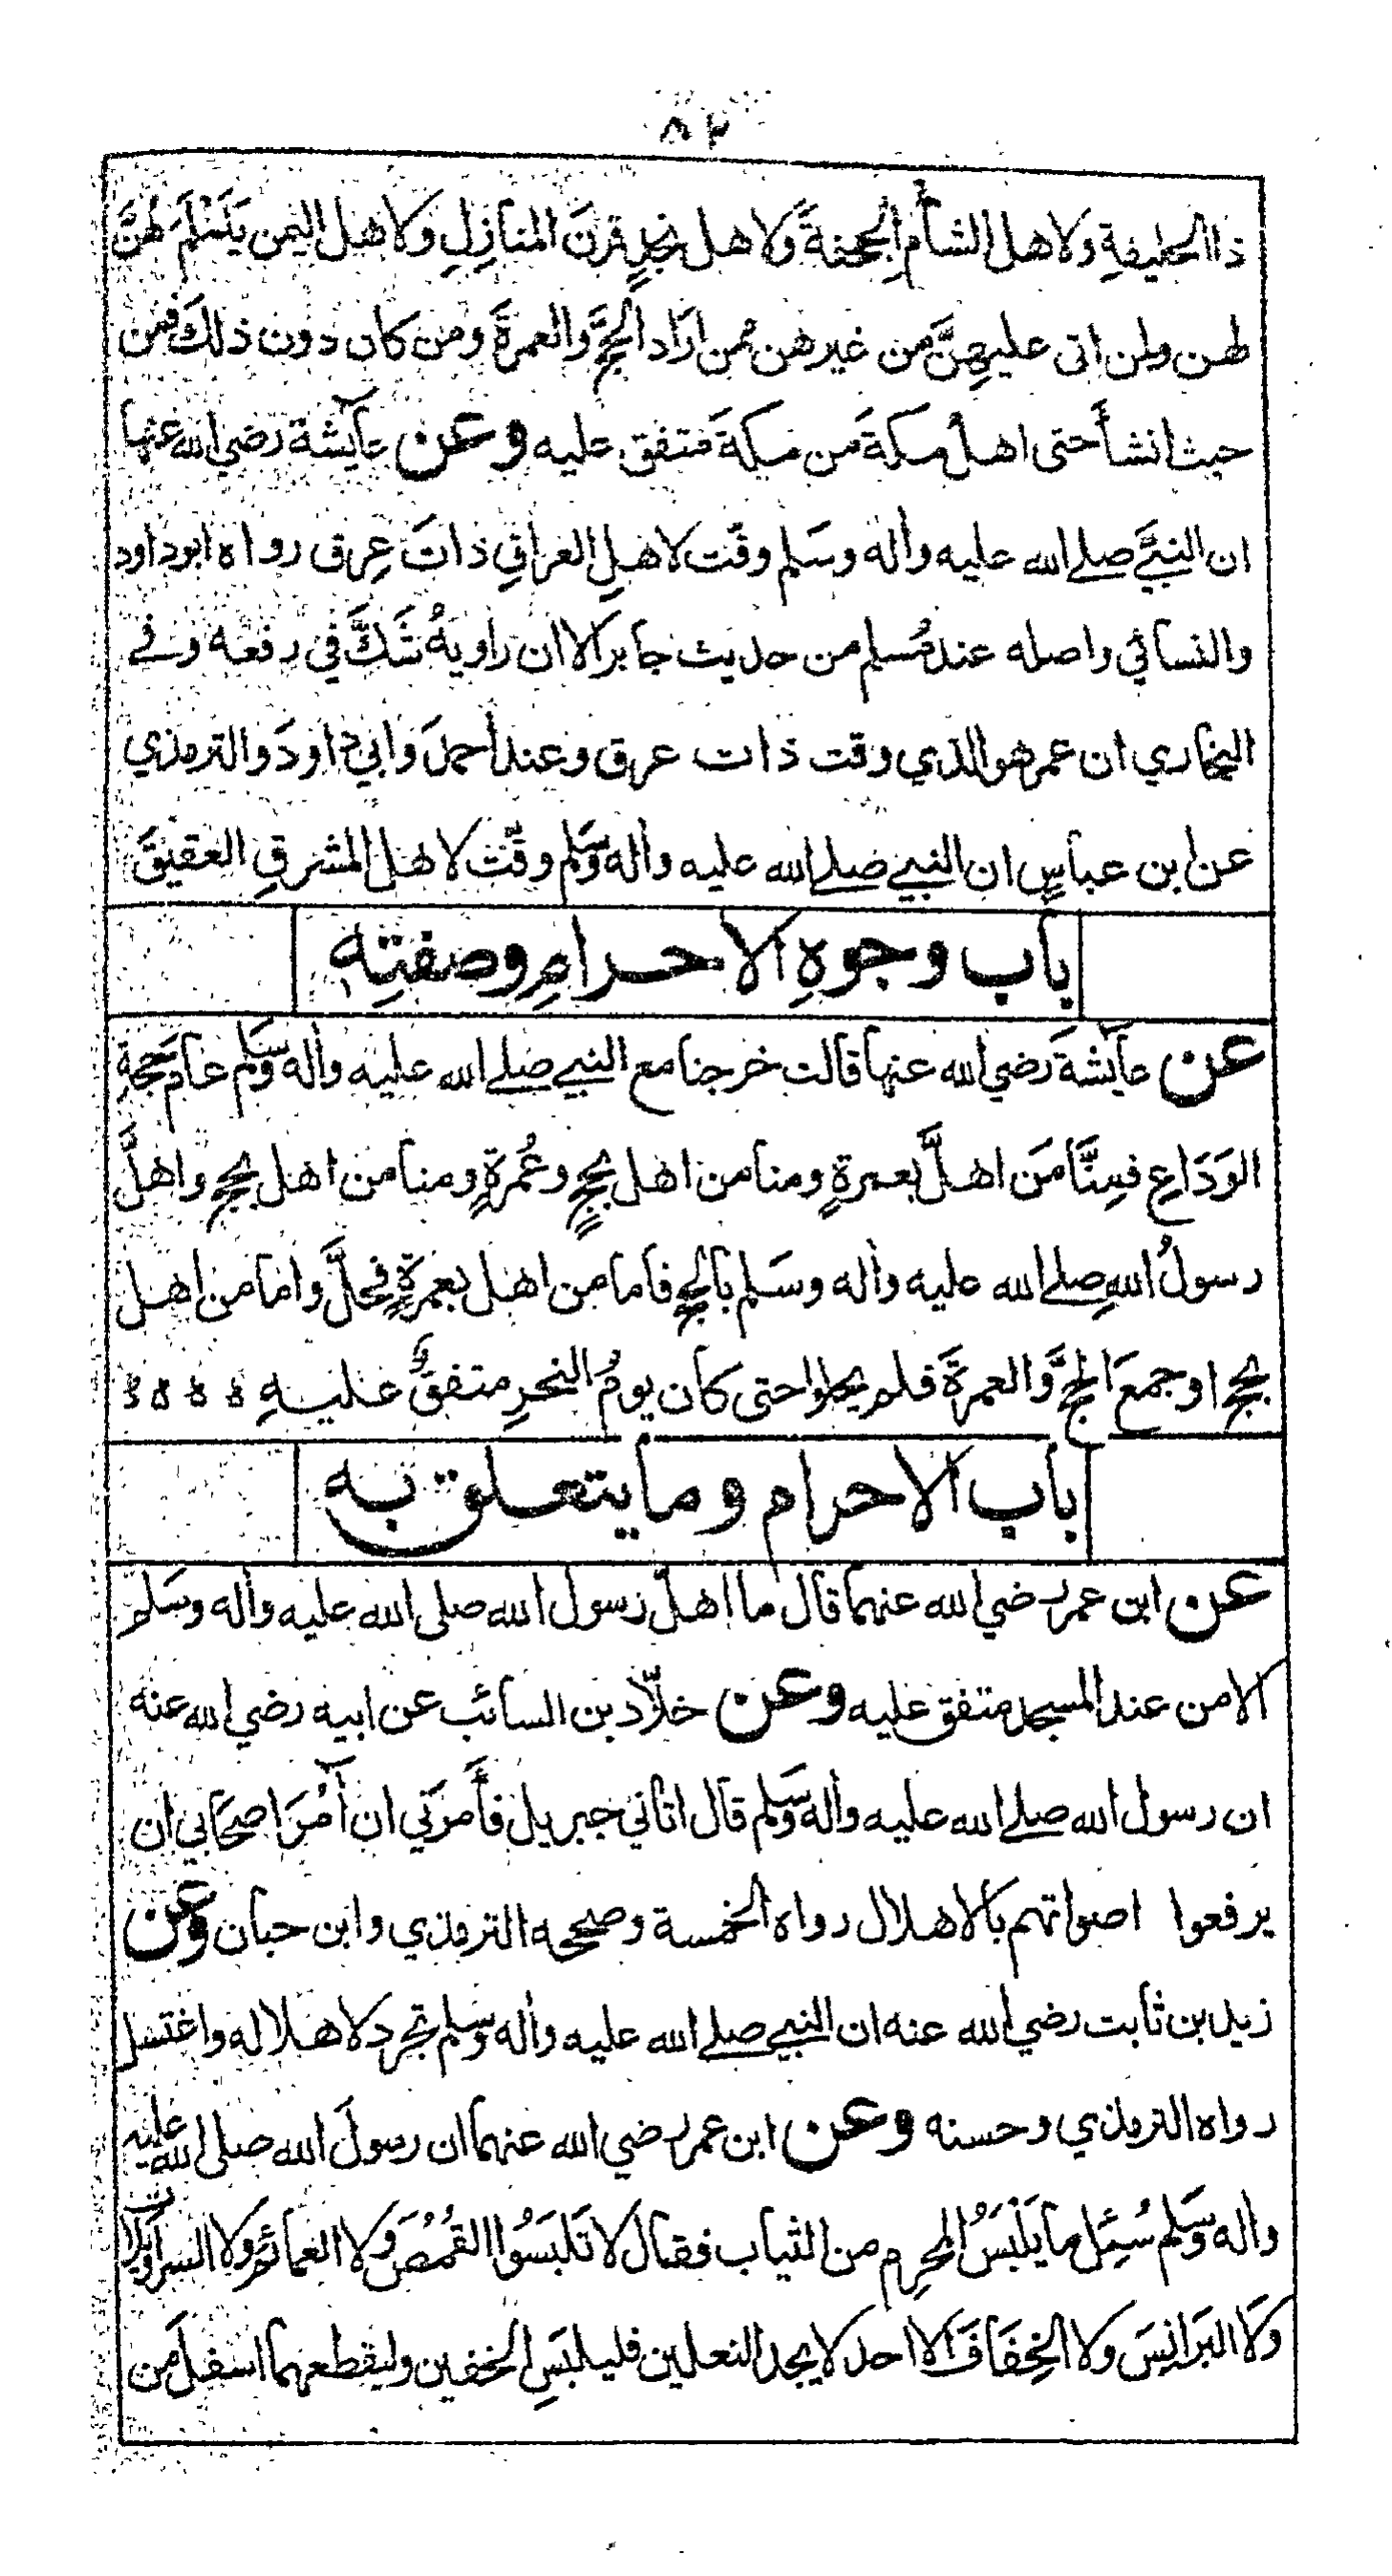 ٨٢
ذا الحليفةِ ولاهل الشأم الجحفةَ ولاهل نجدٍ قرنَ المنازِلِ ولاهل اليمن يَلَمْلَمَ هُنَّ
لهن ولمن اتى عليهِنَّ من غيرهن ممن ارَادَ الحجَّ والعمرةَ ومن كان دون ذلكَ فمن
حيث انشأَ حتى اهلُ مكةَ من مكةَ متفق عليه وعن عايشة رضي الله عنها
ان النبيَّ صلى الله عليه واٰله وسَلم وقّت لاهلِ العراقِ ذاتَ عِرق رواه ابو داود
والنسائي واصله عند مُسلم من حديث جابر الا ان راويهُ شَكَّ في رفعه وفي
البخاري ان عمر هو الذي وقت ذات عرق وعند أحمدَ وابي داودَ والترمذي
عن ابن عباسٍ ان النبي صلى الله عليه واٰله وسَلم وقَّت لاهل المشرقِ العقيقَ
باب وجوهِ الاحرامِ وصفتِه
عن عايشةَ رضي الله عنها قالت خرجنا مع النبي صلى الله عليه واٰله وسَلم عامَ حَجةِ
الوَدَاعِ فمِنَّا مَن اهلَّ بعمرةٍ ومنا من اهل بحجٍ وعُمرةٍ ومنا من اهل بحجٍ واهلَّ
رسولُ اللهِ صلى الله عليه واٰله وسَلم بالحجِ فاما من اهل بعمرةٍ فحلَّ واما من اهل
بحجٍ او جمعَ الحجَّ والعمرةَ فلم يحلوا حتى كان يومُ النحرِ متفقٌ عليهِ ٥ ٥ ٥ ٥
باب الاحرام وما يتعلق به
عن ابن عمر رضي الله عنهما قال ما اهلَّ رسول الله صلى الله عليه واٰله وسَلم
الا من عند المسجد متفق عليه وعن خلّاد بن السائب عن ابيه رضي الله عنه
ان رسول الله صلى الله عليه واٰله وسَلم قال اتاني جبريل فأَمرَني ان آمُرَ اصحَابي ان
يرفعوا اصواتهم بالاهلال رواه الخمسة وصححه الترمذي وابن حبان وعن
زيد بن ثابت رضي الله عنه ان النبي صلى الله عليه واٰله وسلم تجرد لاهلاله واغتسل
رواه الترمذي وحسنه وعن ابن عمر رضي الله عنهما ان رسولَ الله صلى الله عليه
واٰله وسَلم سُئِل ما يَلْبَسُ المحرِم من الثياب فقال لا تَلبَسُوا القُمُصَ ولا العمائم ولا السراويلات
ولَا البَرانِسَ ولا الخِفَافَ الا احد لا يجد النعلين فليلبَسِ الخفين وليقطعهما اسفلَ من